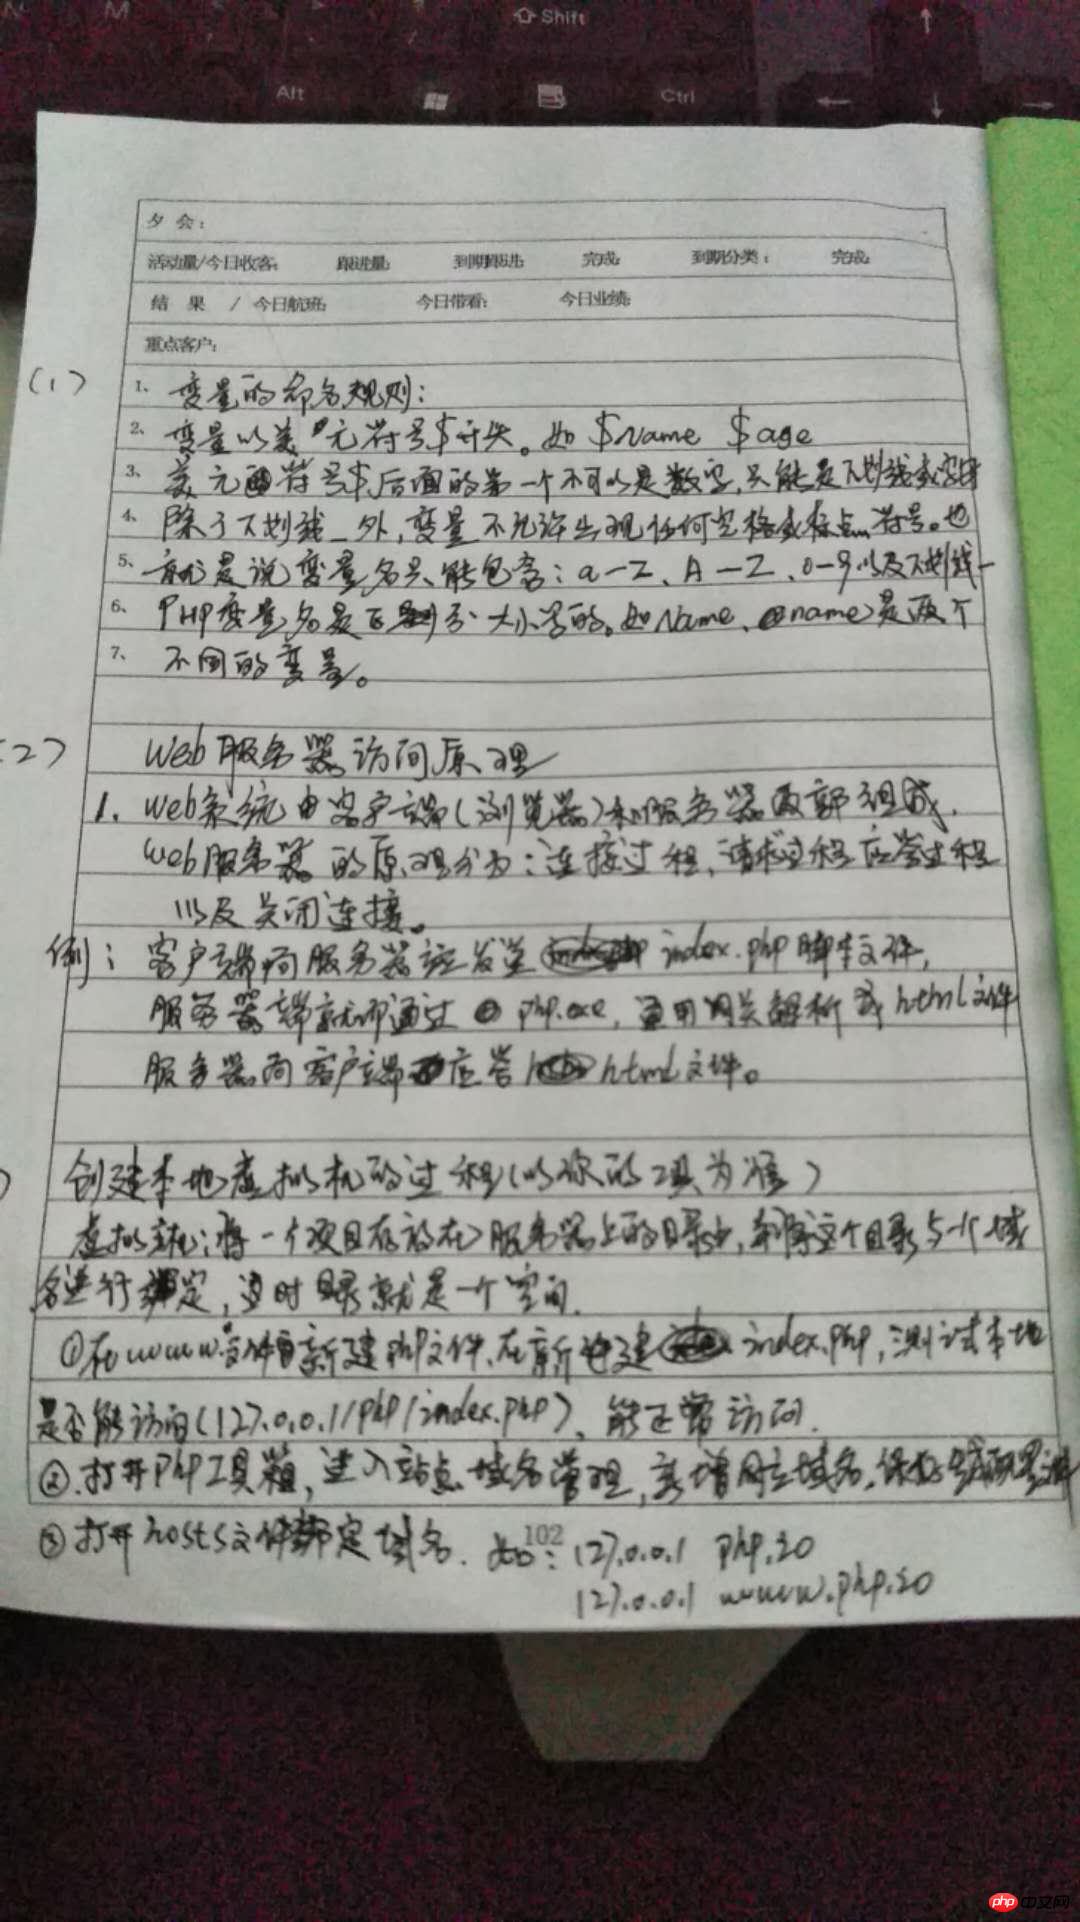 Shift
Alt Ctrl
夕 会：
活动量/今日收客： 跟进量： 到期跟进： 完成： 到期分类： 完成：
结 果 / 今日航班： 今日带看： 今日业绩：
重点客户：
(1) 1、变量的命名规则：
2、变量以美元符号$开头。如 $Name $age
3、美元符号$后面的第一个不可以是数字，只能是下划线或字母
4、除了下划线_外，变量不允许出现任何空格或标点符号。也
5、就是说变量名只能包含：a-Z、A-Z、0-9以及下划线_
6、PHP变量名是区分大小写的。如Name、name是两个
7、不同的变量。
2) Web服务器访问原理
1. Web系统由客户端(浏览器)和服务器两部组成.
Web服务器的原理分为：连接过程，请求过程应答过程
以及关闭连接。
例：客户端向服务器端发送 index.php脚本文件，
服务器端就即通过 php.exe，通用网关解析成html文件
服务器向客户端应答 html文件。
) 创建本地虚拟机的过程(以你的工具为准)
虚拟主机：将一个项目存放在服务器上的目录中，将这个目录与一个域
名进行绑定，这时目录就是一个空间.
①在www文件 新建php文件、在新 建 index.php，测试本地
是否能访问(127.0.0.1/php/index.php)、能正常访问.
②.打开php工具箱，进入站点域名管理，新增 域名.保存
③打开hosts文件绑定域名. 如：127.0.0.1 php.io
102
127.0.0.1 www.php.io
php 中文网